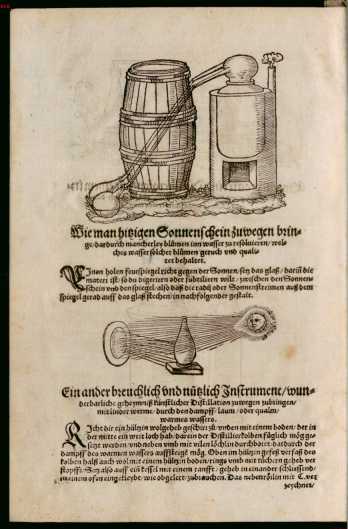 Wie man hitzigen Sonnenschein zuwegen brin-
ge/dardurch mancherley blůmen inn wasser zu resoluieren/wel-
ches wasser solcher blůmen geruch vnd quali-
tet behaltet.
EJnen holen feuerspiegel richt gegen der Sonnen/setz das glaß/darin die
materi ist/so du digerirn oder subtilirn wilt/zwischen den Sonnen-
schein vnd den spiegel/also daß die radij oder Sonnenstreimen auß dem
spiegel gerad auff das glaß stechen/in nachfolgender gestalt.
Ein ander breuchlich vnd nützlich Jnstrument/wun-
derbarliche geheymniß künstlicher Distillation zuwegen zubringen/
mit linder werme/durch den dampff/ laum/oder qualm/
warmes wassers.
RJcht dir ein hültzin wolgeheb geschirr zů/vnden mit einem boden/der in
der mitte ein weit loch hab/darein der Distillierkolben füglich mög ge-
setzt werden/vnd neben vmb mit vilen löchlin durchbort/dardurch der
dampff des warmen wassers auffsteigt mög. Oben im hültzin gefeß verfaß des
kolben halß auch wol mit einem hültzin boden/rings vmb mit tüchern geheb ver
stopfft. Setz also auff ein kessel mit einem ranfft/geheb in einander schliessend/
in einem ofen eingekleybt/wie obgelert/zubrauchen. Das nebenrörlin mit C. ver
zeychnet/